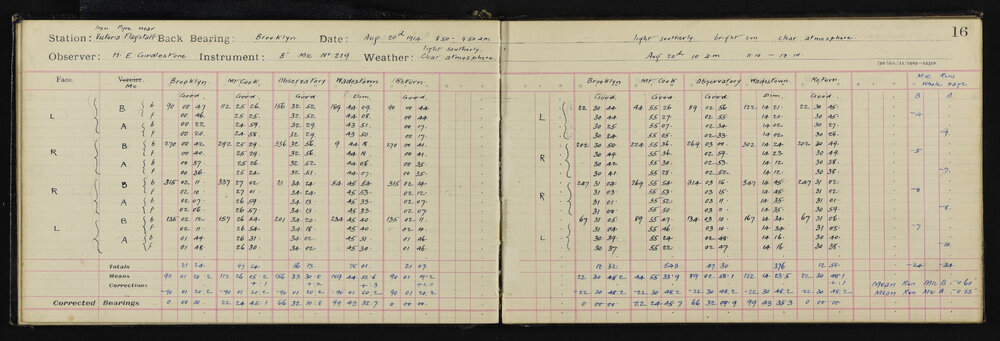 Iron Pipe near
Station: Victoria Flagstaff Back Bearing: Brooklyn Date: Aug. 20th 1914 8.50 - 9.50 a.m.
Observer: H E Girdlestone Instrument: 5" Mic No 219 Weather: light southerly Clear atmosphere
Face. Vernier. Mic Brooklyn Mt Cook. Observatory Wadestown Return.
Good. Good. Good. Dim. Good.
L B b 90 00 47 112 25 26 156 32 52 189 44 09 90 00 44
f 00 46 25 25 32 52 44 08 00 44
A b 00 22 24 59 32 29 43 51 00 17
f 00 20 24 58 32 29 43 50 00 17
R B b 270 00 42 292 25 29 336 32 56 9 44 18 270 00 41
f 00 40 25 29 32 56 44 18 00 41
A b 00 37 25 26 32 52 44 08 00 35
f 00 36 25 24 32 51 44 07 00 35
R B b 315 02 11 337 27 02 21 34 24 54 45 54 315 02 14
f 02 10 27 01 34 24 45 53 02 12
A b 02 07 26 59 34 13 45 33 02 07
f 02 06 26 57 34 13 45 33 02 07
L B b 135 02 12 157 26 54 201 34 20 234 45 40 135 02 11
f 02 11 26 54 34 18 45 40 02 10
A b 01 49 26 31 34 02 45 31 01 46
f 01 48 26 30 34 02 45 30 01 46
Totals 21 24 97 24 56 13 75 01 21 07
Means 90 01 20.2 112 26 05.2 156 33 30.8 189 44 52.6 90 01 19.2
Correction +.1 +.2 +.3 +1.0
-90 01 20.2 -90 01 20.2 -90 01 20.2 -90 01 20.2 -90 01 20.2
Corrected Bearings 0 00 00 22 24 45.1 66 32 10.8 99 43 32.7 0 00 00
16
light southerly bright sun clear atmosphere
Aug 20th 10 a.m. 11-10 - 12-10
Brooklyn Mt Cook Observatory Wadestown Return Mic Runs
Whole Page
Good. Good. Good. Dim. Good. B A
L 22 30 44 44 55 26 89 02 56 122 14 21 22 30 45
30 44 55 27 02 55 14 20 30 45 -4
30 25 55 07 02 34 14 02 30 27
30 24 55 05 02 33 14 02 30 26 -9
R 202 30 50 224 55 36 269 03 00 302 14 24 202 30 49
30 49 55 36 02 59 14 23 30 49 -5
30 42 55 30 02 53 14 12 30 38
30 41 55 28 02 52 14 12 30 38 -7
R 247 31 04 269 55 54 314 03 16 347 14 45 247 31 02
31 03 55 53 03 15 14 45 31 01 -8
31 01 55 52 03 11 14 35 31 00
31 00 55 50 03 11 14 35 30 59 -8
L 67 31 05 89 55 47 134 03 10 167 14 34 67 31 06
31 04 55 46 03 10 14 34 31 05 -7
30 39 55 24 02 48 14 16 30 40
30 37 55 22 02 47 14 16 30 38 -10
12 52 543 47 30 376 12 50 -24 -34
22 30 48.2 44 55 33.9 89 02 58.1 122 14 23.5 22 30 48.1
+.1
-22 30 48.2 -22 30 48.2 -22 30 48.2 -22 30 48.2 -22 30 48.2
Mean Run Mic B -0.60
Mean Run Mic A -0.85
0 00 00 22 24 45.7 66 32 09.9 99 43 35.3 0 00 00